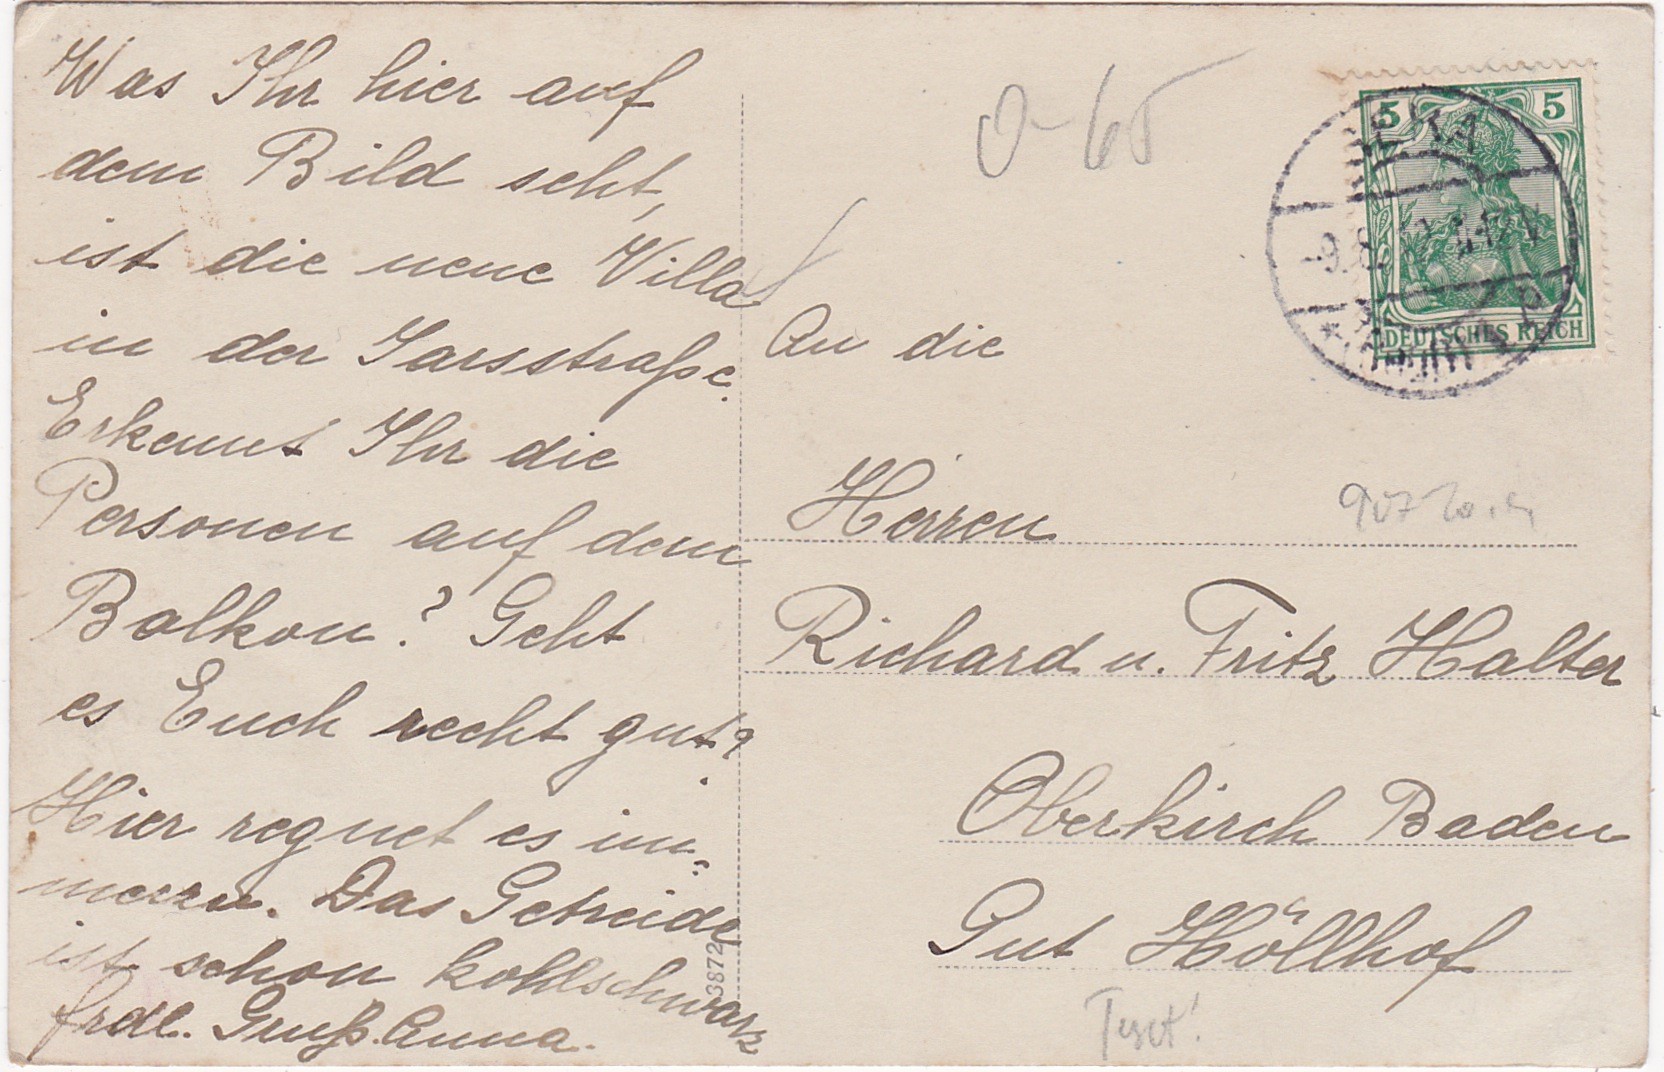 Was Ihr hier auf
dem Bild seht,
ist die neue Villa
in der Sarsstraße.
Erkennt Ihr die
Personen auf dem
Balkon? Geht
es Euch recht gut?
Hier regnet es im-
merzu. Das Getreide
ist schon kohlschwarz
frdl. Gruß. Anna.
3872
0-65
5 5
DEUTSCHES REICH
An die
Herren
Richard u. Fritz Halter
Oberkirch Baden
Gut Höllhof
Text!